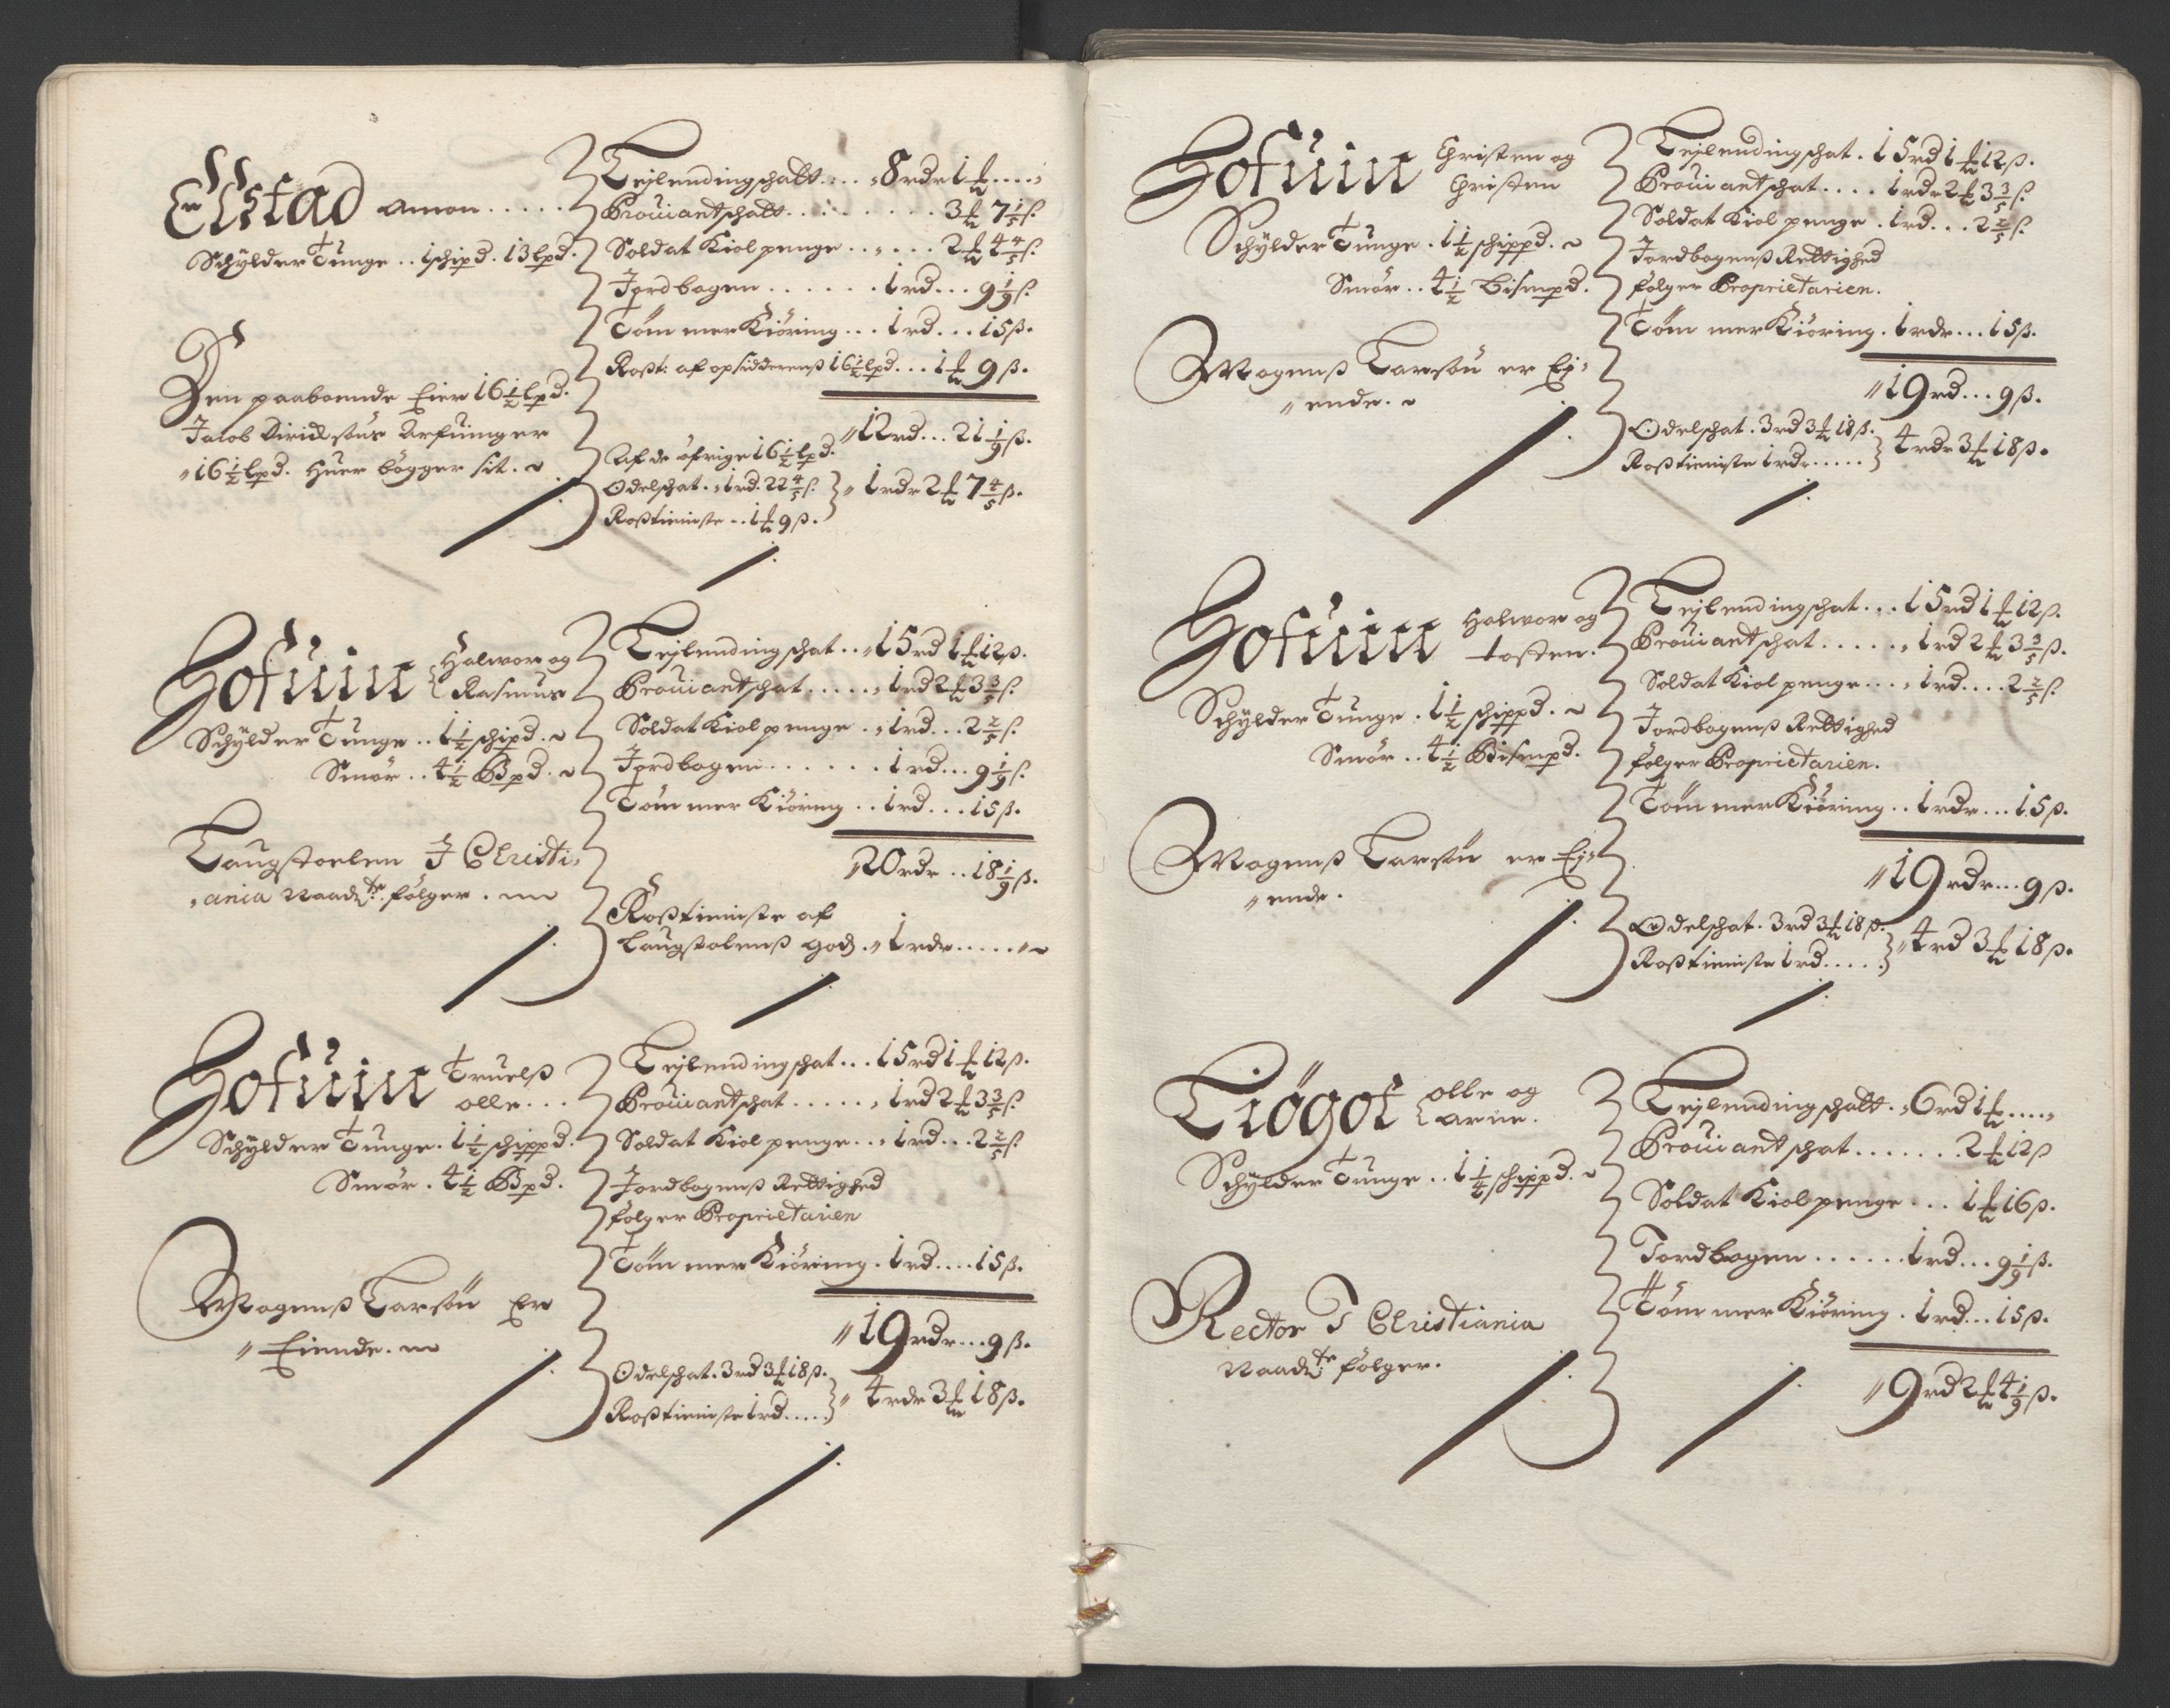 Elstad Amon . . . . .
Schylder Tunge . . 1 schipd. 13 lpd.
Den paaboende Eier 16 1/2 lpd.
Jacob Dirichsøns Arfuinger
16 1/2 lpd. huer bögger sit.
Leylendingschatt . . . . 8 rdr 1 ℔ . . . .
Prouiantschatt . . . . . . . . 3 ℔ 7 1/5 ß.
Soldat Kiolpenge . . . . . 2 ℔ 4 4/5 ß.
Jordbogen . . . . . . 1 rd . . . 9 1/9 ß.
Tömmer Kiöring . . . 1 rd . . . 15 ß.
Roßt: af opsidderens 16 1/2 lpd . . . 1 ℔ 9 ß.
12 rd . . . 21 1/9 ß.
Af de öfrige 16 1/2 lpd.
Odelschat . 1 rd. 22 4/5 ß.
Roßtieniste . . 1 ℔ 9 ß.
1 rdr 2 ℔ 7 4/5 ß.
Hofuin Halwor og
Rasmus
Schylder Tunge . . 1 1/2 schipd.
Smör . . 4 1/2 Bpd.
Laugstoelen J Christi,
ania Naadte. fölger.
Leylendingschat . . 15 rd 1 ℔ 12 ß.
Prouiantschat . . . . . 1 rd 2 ℔ 3 3/5 ß.
Soldat Kiolpenge . . 1 rd . . . 2 2/5 ß.
Jordbogen . . . . . . 1 rd . . . 9 1/9 ß.
Tömmer Kiöring . . 1 rd . . . 15 ß.
20 rdr . . 18 1/9 ß.
Roßtieniste af
Laugstolens God. 1 rdr . . . . .
Hofuin Truels
olle . . .
Schylder Tunge . 1 1/2 schippd.
Smör . 4 1/2 Bpd.
Mogens Larsön Er
Eiende.
Leylendingschat . . . 15 rd 1 ℔ 12 ß.
Prouiantschat . . . . . 1 rd 2 ℔ 3 3/5 ß.
Soldat Kiolpenge . . . 1 rd . . . 2 2/5 ß.
Jordbogens Rettighed
fölger Proprietarien
Tömmer Kiöring . 1 rd . . . . 15 ß.
19 rdr . . . 9 ß.
Odelschat . 3 rd 3 ℔ 18 ß.
Roßtieniste 1 rd . . . . .
4 rdr 3 ℔ 18 ß.
Hofuin Christen og
Christen
Schylder Tunge . 1 1/2 schippd.
Smör . . 4 1/2 Bismpd.
Mogens Larsön er Ej,
ende.
Leylendingschat . 15 rd 1 ℔ 12 ß.
Prouiantschat . . . . 1 rdr 2 ℔ 3 3/5 ß.
Soldat Kiolpenge . 1 rd . . . 2 2/5 ß.
Jordbogens Rettighed
fölger Proprietarien.
Tömmer Kiöring . 1 rdr . . . 15 ß.
19 rd . . . 9 ß.
Odelschat . 3 rd 3 ℔ 18 ß.
Roßtieniste 1 rdr . . . . .
4 rdr 3 ℔ 18 ß.
Hofuin Halwor og
tosten.
Schylder Tunge . 1 1/2 schippd.
Smör . . 4 1/2 Bismpd.
Mogens Larsön er Ej,
ende.
Leylendingschat . . . 15 rd 1 ℔ 12 ß.
Prouiantschat . . . . . 1 rd 2 ℔ 3 3/5 ß.
Soldat Kiolpenge . . . 1 rd . . . . 2 2/5 ß.
Jordbogens Rettighed
fölger Proprietarien.
Tömmer Kiöring . . 1 rdr . . . 15 ß.
19 rdr . . . 9 ß.
Odelschat . 3 rd 3 ℔ 18 ß.
Roßtieniste 1 rd . . . . .
4 rd 3 ℔ 18 ß.
Tiögot olle og
Arne.
Schylder Tunge . . 1 1/4 schippd.
Rector J Christiania
Naadte fölger.
Leylendingschatt . 6 rd 1 ℔ . . . .
Prouiantschat . . . . . . . 2 ℔ 12 ß
Soldat Kiolpenge . . . 1 ℔ 16 ß.
Jordbogen . . . . . . 1 rd . . . 9 1/9 ß.
Tömmer Kiöring . 1 rd . . . 15 ß.
9 rd 2 ℔ 4 1/9 ß.